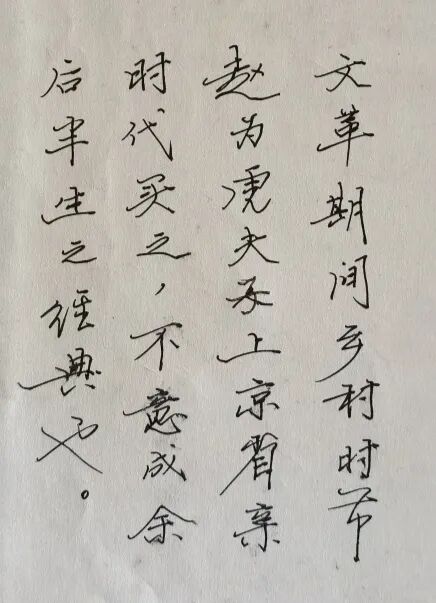 文革期间乡村时节
赵为夫子上京省亲
时代买之，不意成余
后半生之经典也。